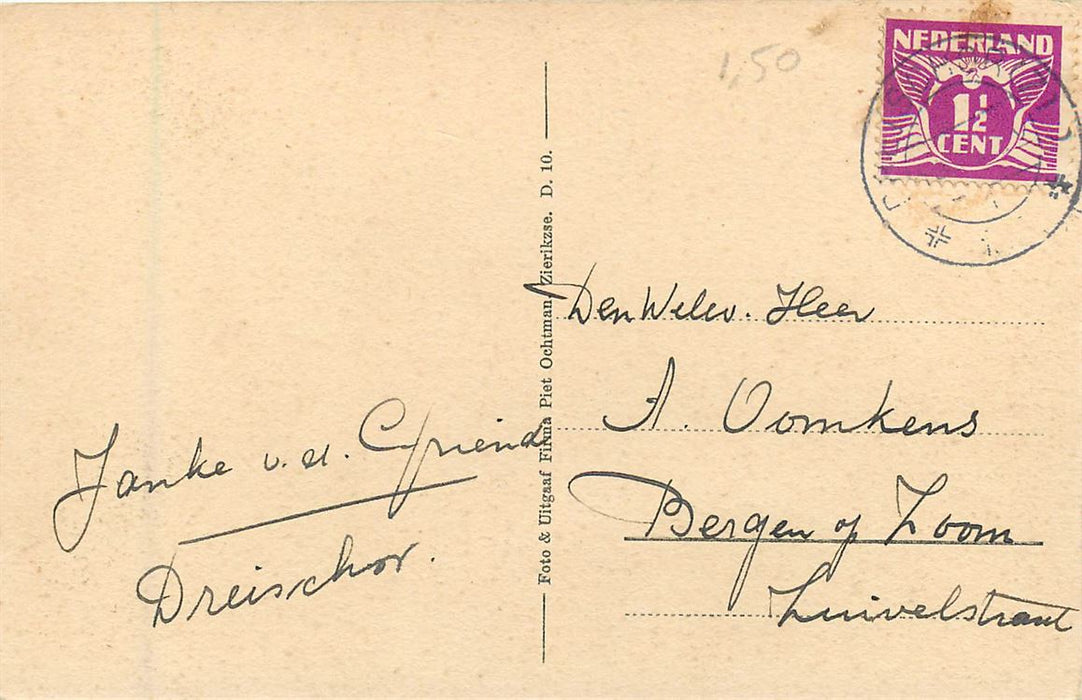 1,50
NEDERLAND
1½
CENT
Janke v. d. Griend
Dreischor.
Foto & Uitgaaf Firma Piet Ochtman Zierikzse. D. 10.
Den Welev. Heer
A. Oomkens
Bergen op Zoom
Zuivelstraat